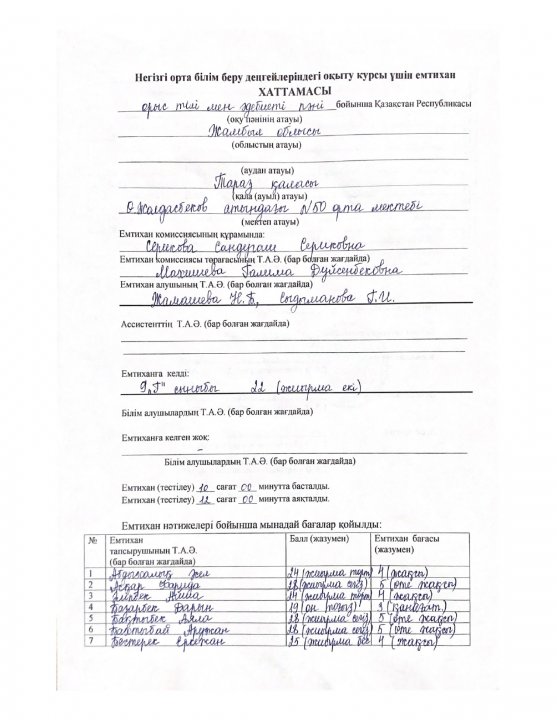 Негізгі орта білім беру деңгейлеріндегі оқыту курсы үшін емтихан
ХАТТАМАСЫ
орыс тілі мен әдебиеті пәні бойынша Қазақстан Республикасы
(оқу пәнінің атауы)
Жамбыл облысы
(облыстың атауы)
(аудан атауы)
Тараз қаласы
(қала (ауыл) атауы)
Ө.Жолдасбеков атындағы №50 орта мектебі
(мектеп атауы)
Емтихан комиссиясының құрамында:
Серикова Сандугаш Сериковна
Емтихан комиссиясы төрағасының Т.А.Ә. (бар болған жағдайда)
Галима Дүйсенбековна
Емтихан алушының Т.А.Ә. (бар болған жағдайда)
Жамашева Н.Б., Сыдыманова Г.И.
Ассистенттің Т.А.Ә. (бар болған жағдайда)
Емтиханға келді:
9 "Г" сыныбы 22 (жиырма екі)
Білім алушылардың Т.А.Ә. (бар болған жағдайда)
Емтиханға келген жоқ:
–
Білім алушылардың Т.А.Ә. (бар болған жағдайда)
Емтихан (тестілеу) 10 сағат 00 минутта басталды.
Емтихан (тестілеу) 12 сағат 00 минутта аяқталды.
Емтихан нәтижелері бойынша мынадай бағалар қойылды:
№ Емтихан тапсырушының Т.А.Ә. (бар болған жағдайда) Балл (жазумен) Емтихан бағасы (жазумен)
1 24 (жиырма төрт) 4 (жақсы)
2 Асқар 28 (жиырма сегіз) 5 (өте жақсы)
3 24 (жиырма төрт) 4 (жақсы)
4 Базарбек Дарын 19 (он тоғыз) 3 (қанағат)
5 Бақтыбек Аяла 28 (жиырма сегіз) 5 (өте жақсы)
6 Бақтыбай Аружан 28 (жиырма сегіз) 5 (өте жақсы)
7 Бестерек Ержан 25 (жиырма бес) 4 (жақсы)